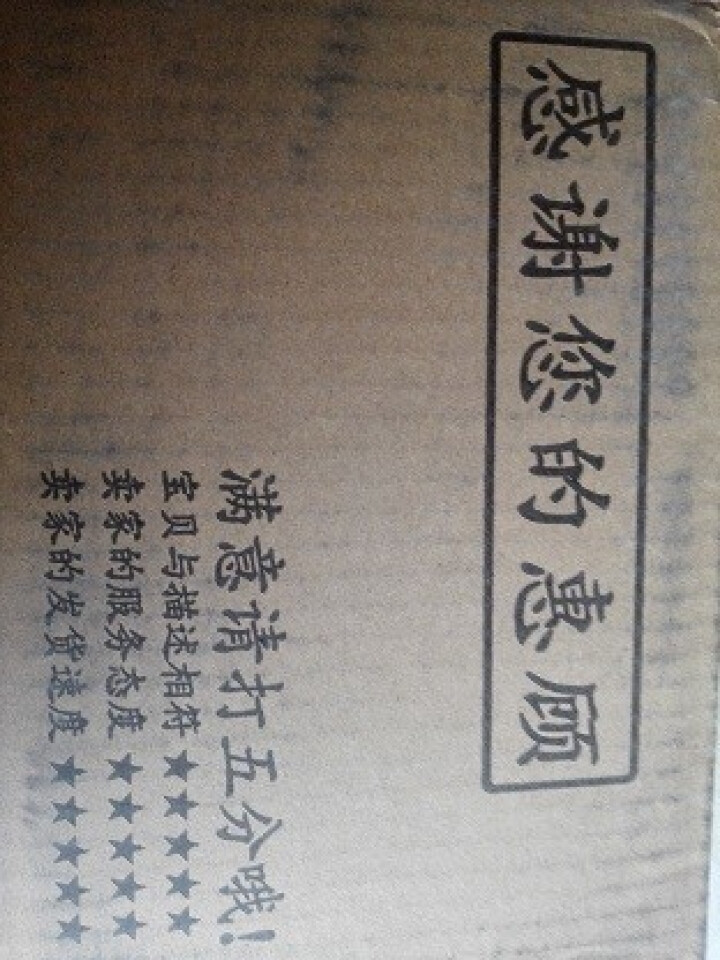 感谢您的惠顾
满意请打五分哦!
宝贝与描述相符★★★★★
卖家的服务态度★★★★★
卖家的发货速度★★★★★